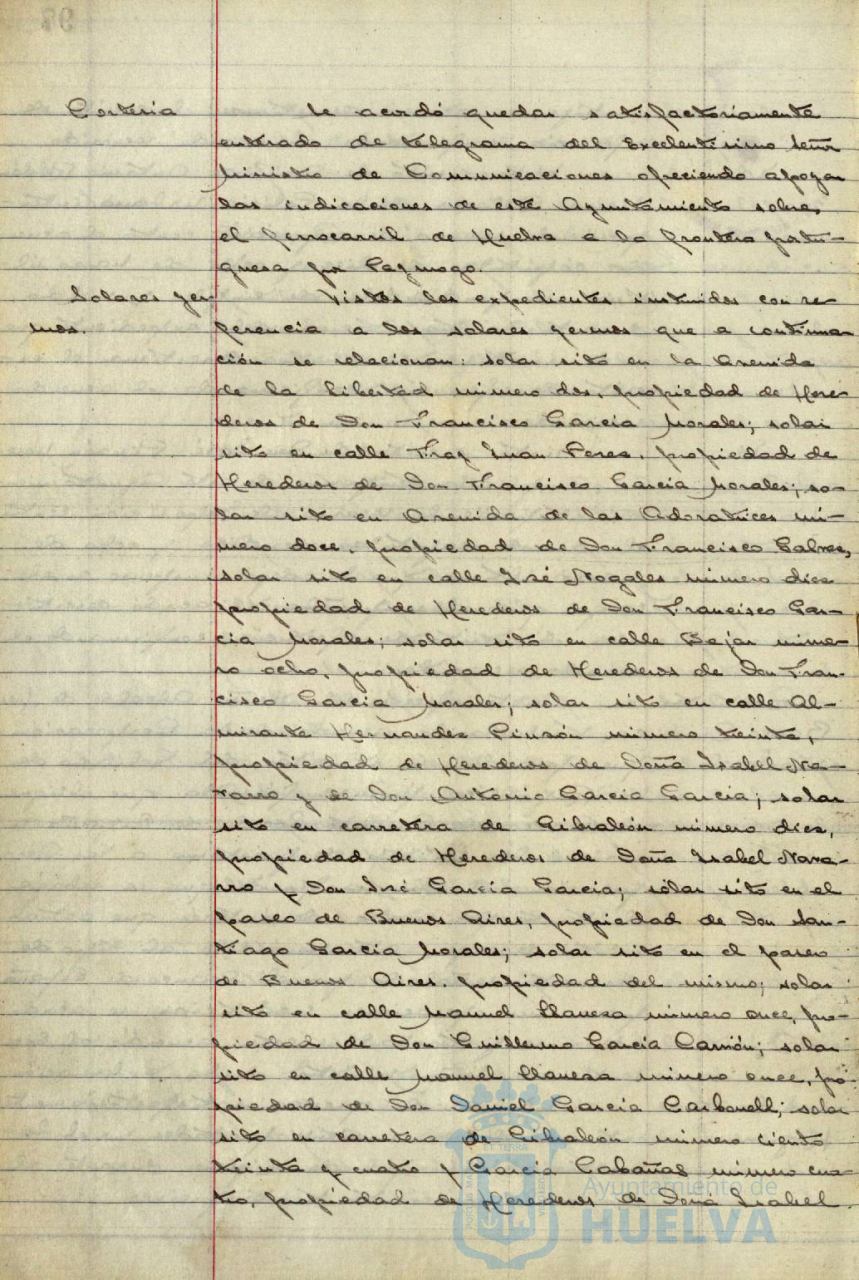 97
Cortesía
Se acordó quedar satisfactoriamente
enterado de telegrama del Excelentisimo Señor
Ministro de Comunicaciones ofreciendo apoyar
las indicaciones de este Ayuntamiento sobre
el ferrocarril de Huelva a la frontera portu-
guesa por Paymogo.
Solares yer-
mos.
Vistos los expedientes instruidos con re-
ferencia a los solares yermos que a continua-
ción se relacionan: solar sito en la Avenida
de la Libertad número dos, propiedad de Here-
deros de Don Francisco García Morales; solar
sito en calle Fray Juan Perez, propiedad de
Herederos de Don Francisco García Morales; so-
lar sito en Avenida de las Adoratrices nú-
mero doce, propiedad de Don Francisco
solar sito en calle José Nogales número diez
propiedad de Herederos de Don Francisco Gar-
cía Morales; solar sito en calle Bejar núme-
ro ocho, propiedad de Herederos de Don Fran-
cisco García Morales; solar sito en calle Al-
mirante Hernandez Pinzón número treinta,
propiedad de Herederos de Doña Isabel Na-
varro y de Don Antonio García García; solar
sito en carretera de Gibraleón número diez,
propiedad de Herederos de Doña Isabel Nava-
rro y Don José García García; sólar sito en el
paseo de Buenos Aires, propiedad de Don San-
tiago García Morales; solar sito en el paseo
de Buenos Aires, propiedad del mismo; solar
sito en calle Manuel Llaneza número once, pro-
piedad de Don Guillermo García Carrión; solar
sito en calle Manuel Llaneza número once, pro-
piedad de Don Daniel García Carbonell; solar
sito en carretera de Gibraleón número ciento
treinta y cuatro y García Cabañas número cua-
tro, propiedad de Herederos de Doña Isabel
Ayuntamiento de
HUELVA